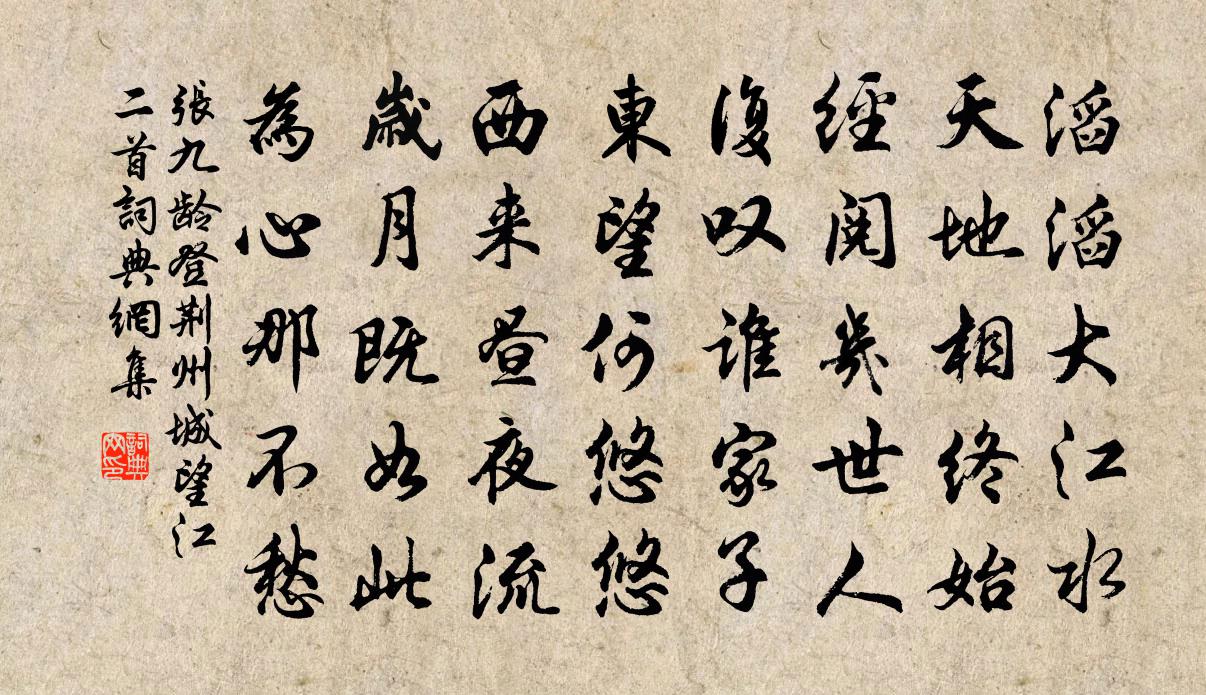 滔滔大江水
天地相终始
經閱幾世人
復叹誰家子
東望何悠悠
西来昼夜流
歲月既如此
為心那不愁
張九龄登荆州城望江
二首詞典網集
詞典
网印